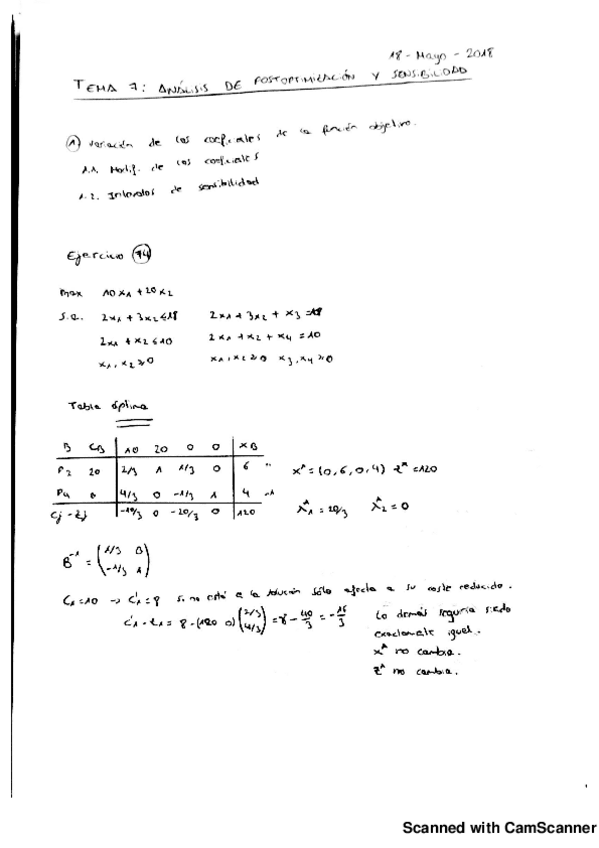 18 - Mayo - 2018
TEMA 7: ANÁLISIS DE POSTOPTIMIZACIÓN Y SENSIBILIDAD
1 Variación de los coeficientes de la función objetivo.
1.1. Modif. de los coeficientes
1.2. Intervalos de sensibilidad
Ejercicio 74
max 10x1 + 20x2
s.a. 2x1 + 3x2 ≤ 18 2x1 + 3x2 + x3 = 18
2x1 + x2 ≤ 10 2x1 + x2 + x4 = 10
x1, x2 ≥ 0 x1, x2 ≥ 0 x3, x4 ≥ 0
Tabla óptima
B CB 10 20 0 0 XB
P2 20 2/3 1 1/3 0 6 x* = (0, 6, 0, 4) z* = 120
P4 0 4/3 0 -1/3 1 4
Cj - Zj -10/3 0 -20/3 0 120 λ1* = 20/3 λ2* = 0
B⁻¹ = (1/3 0
-1/3 1)
C1 = 10 → C'1 = 8 si no está en la solución sólo afecta a su coste reducido.
C'1 - Z1 = 8 - (20 0) (2/3 4/3) = 8 - 40/3 = -16/3 Lo demás seguiría siendo
exactamente igual.
x* no cambia.
z* no cambia.
Scanned with CamScanner